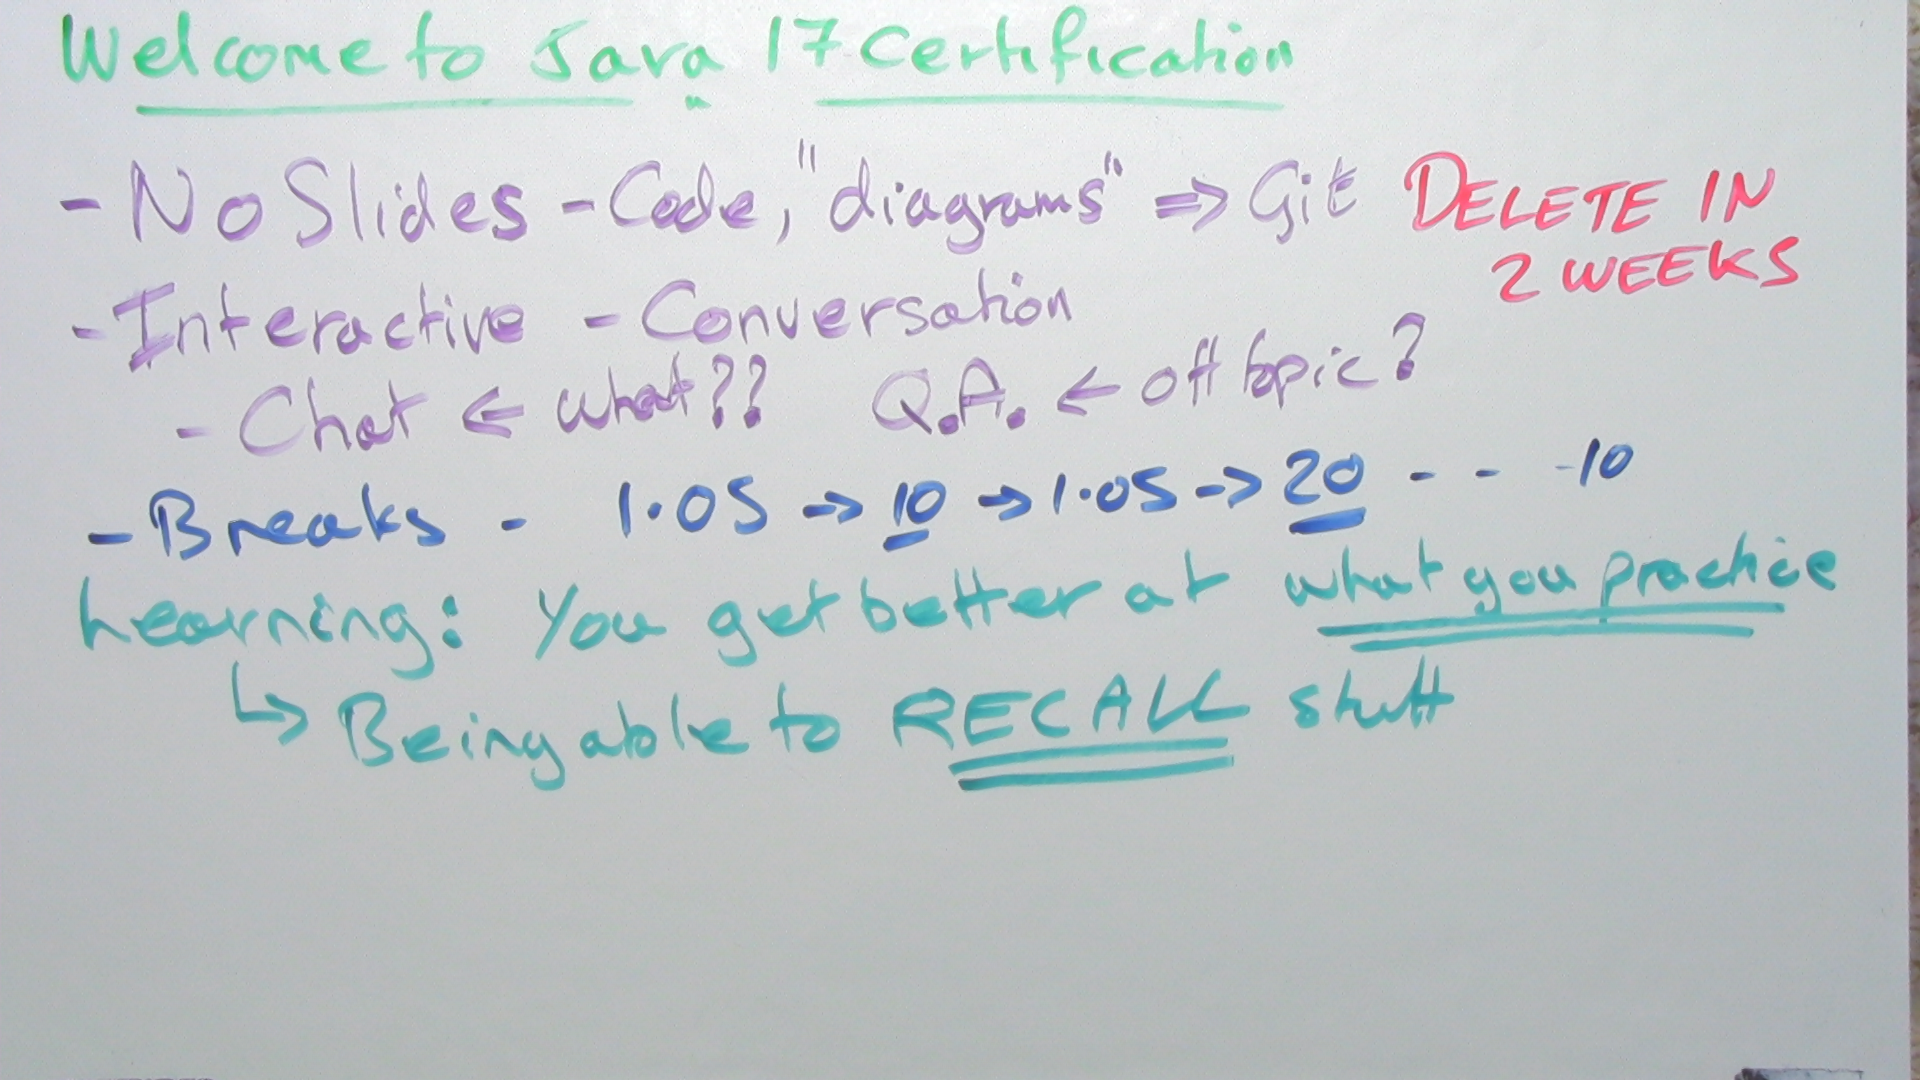 Welcome to Java 17 Certification
- No Slides - Code, "diagrams" => Git DELETE IN
2 WEEKS
- Interactive - Conversation
- Chat <- what?? Q.A. <- off topic?
- Breaks - 1.05 -> 10 -> 1.05 -> 20 - - - 10
Learning: You get better at what you practice
↳ Being able to RECALL stuff